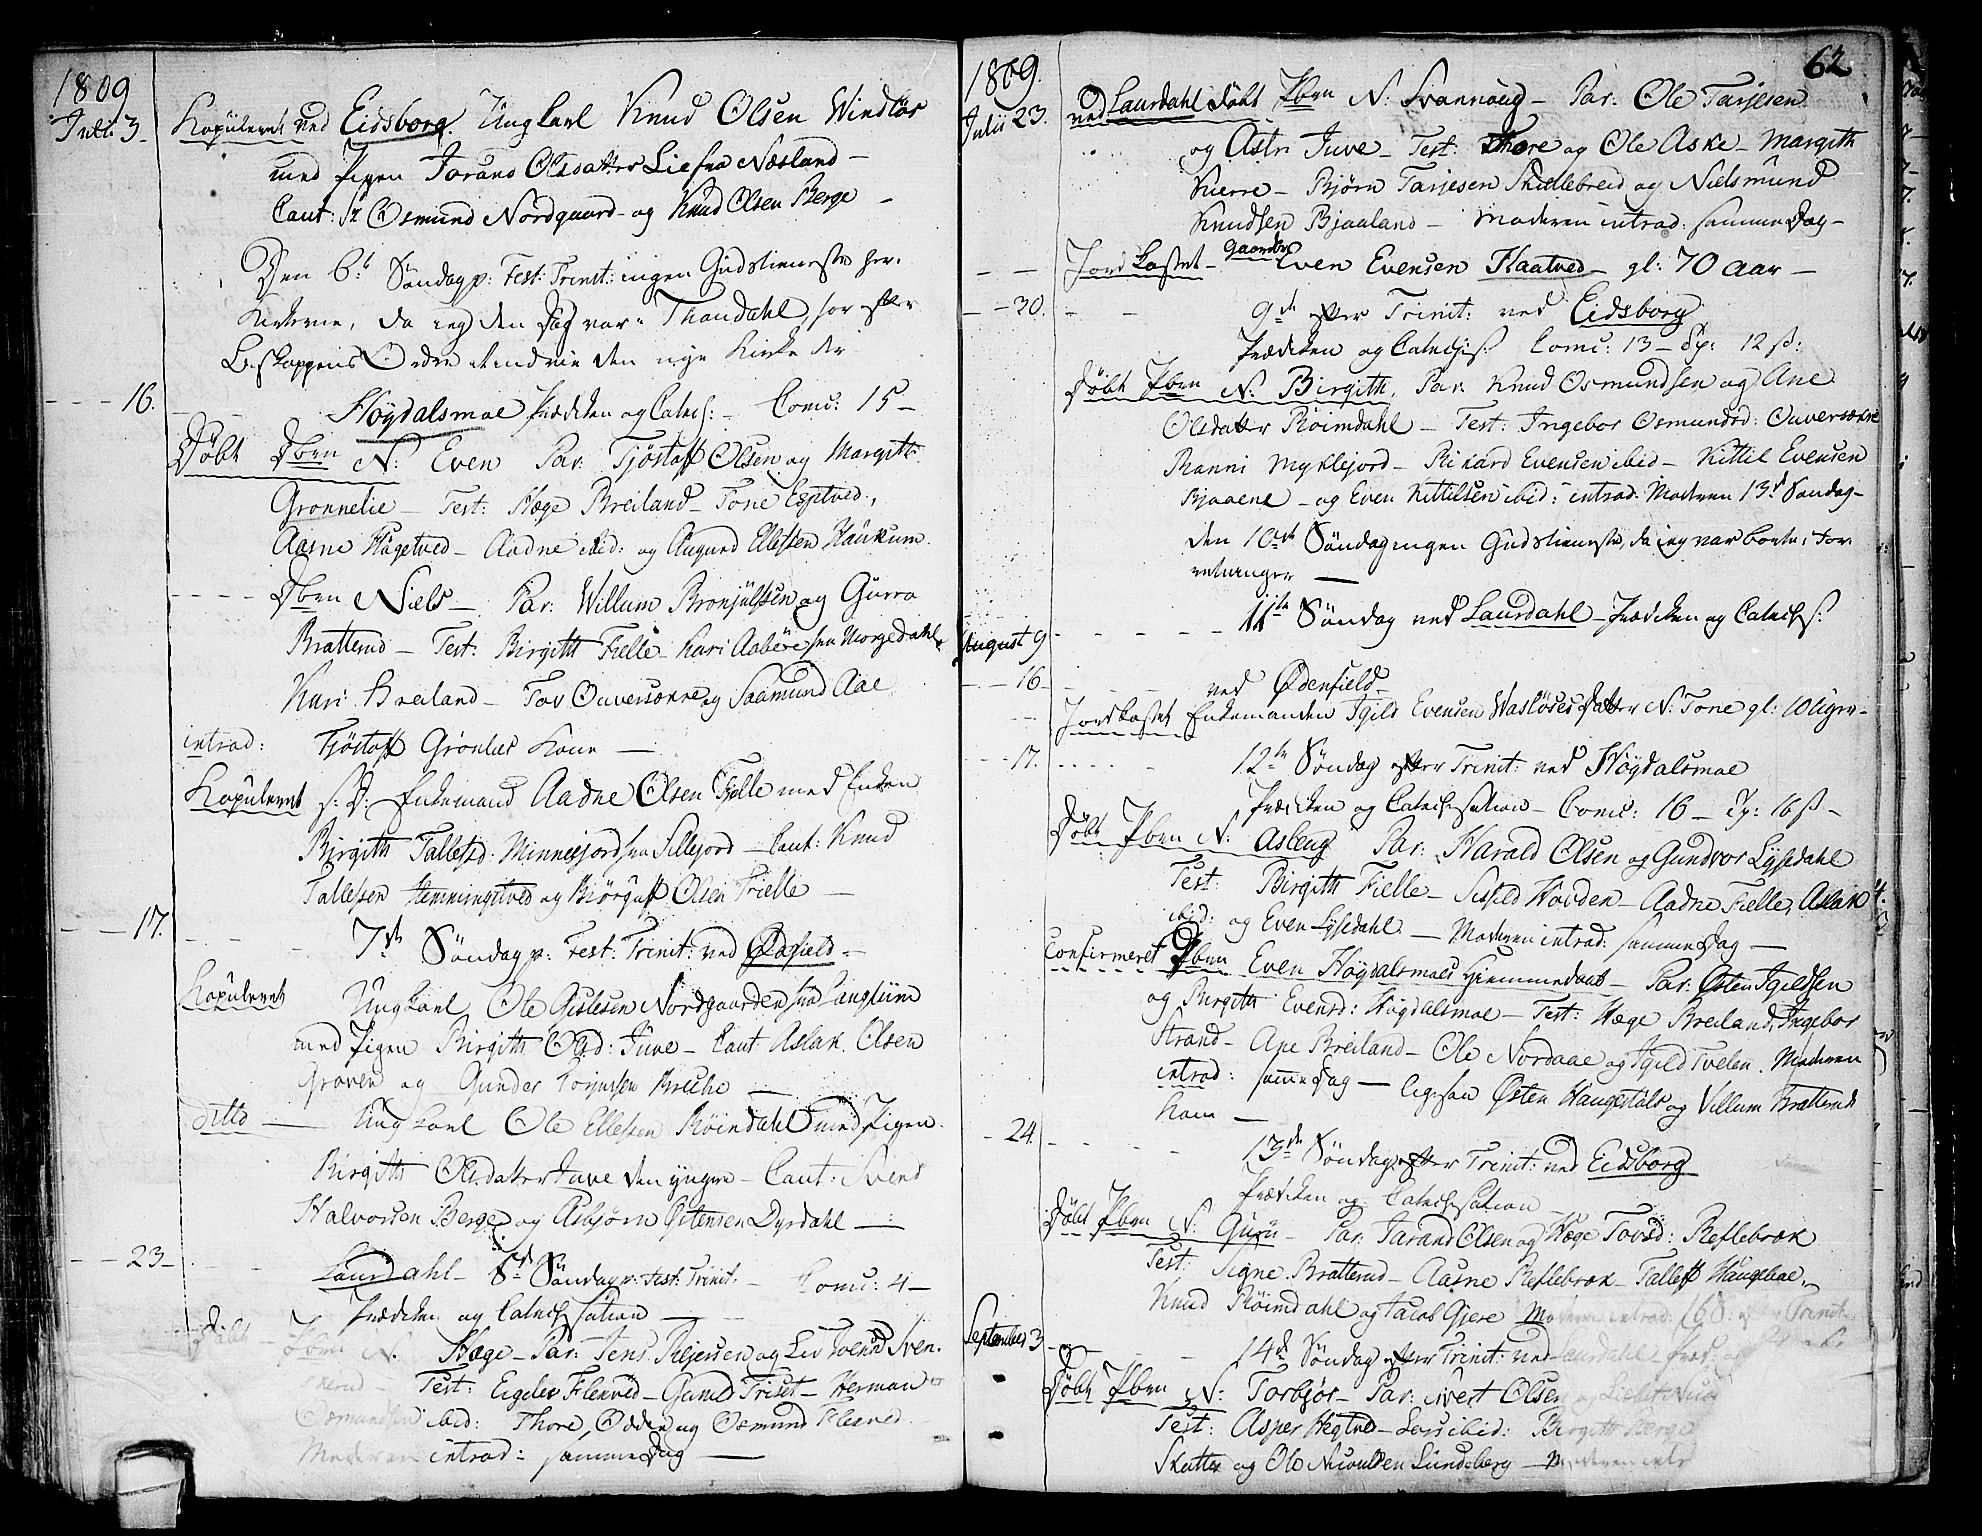 1809
Julii 3. Kopuleret ved Eidsborg. Ungkarl Knud Olsen Windlös
med Pigen Torand Olsdatter Lie fra Næsland –
Caut: Sr Osmund Nordgaard – og Knud Olsen Berge –
Den 6te Söndag p: Fest: Trinit: ingen Gudstieneste her i
Kirkerne, da ieg den Dag var i Thondahl, for efter
Biskoppens Ordre at indvie den nye Kirke der
16. Höydalsmoe Prædiken og Catech: – Comu: 15 –
Döbt Dbrn N: Even Par: Tjöstoff Olsen og Margith
Grönnelie – Test: Hæge Breiland – Tone
Aasne Hagetved – Aadne ibid: og Augund Ellefsen Haukum.
Dbrn Niels – Par: Willum Bronjulfsen og Gurro
Bratterud – Test: Birgith Fielle – Kari Aaböre fra Morgedahl,
Kari Breiland – Tov Ouversonne og Saamund Aae
introd: Tjöstoff Grönlies Kone –
Kopuleret s: D: Enkemand Aadne Olsen Fjelle med Enken
Birgith Tallefsd: Minnesjord fra Sillejord – Caut: Knud
Tallefsen Hemmingstved og Björguff Olsen Fielle –
17. 7de Söndag p: Fest: Trinit: ved Ødefield –
Kopuleret Ungkarl Ole Gislesen Nordgaarden fra Langsum
med Pigen Birgith Olsd: Juve – Caut: Aslak Olsen
Groven og Gunder Torjussen Bruhe –
ditto – Ungkarl Ole Ellefsen Röimdahl med Pigen
Birgith Olsdatter Juve den yngre – Caut: Svend
Halvorsen Berge og Asbjörn Östensen Dyrdahl –
23. Laurdahl – 8de Söndag p: Fest: Trinit: – Comu: 4 –
Prædiken og Catechisation –
Döbt Dbrn N. Hæge – Par: Jens Rejersen og Liv Svends: Sven-
Test: Eigelev Flekved – Gunild Triset – Herman
Osmundsen ibid: Thore, Odden og Osmund Flekved
Moderen introd: samme Dag –
62
1809.
Julii 23. ved Laurdahl döbt Pbrn N: Svannoug – Par: Ole Tarjesen
og Astri Juve – Test: Thore og Ole Aske – Margith
Kierre – Björn Tarjesen Skullebreid og Nielsmund
Knudsen Bjaaland – Moderen introd: samme Dag –
Jordkastet – Gaardbr Even Evensen Kaatved – gl: 70 aar –
30. 9de efter Trinit: ved Eidsborg
Prædiken og Catechis: Comu: 13 – 12 ß:
Döbt Pbrn N: Birgith, Par: Knud Osmundsen og Ane
Olsdatter Röimdahl – Test: Ingebor Osmundsd: Ouversonne
Ranni Myklejord – Rikard Evensen ibid – Kittil Evensen
Bjaaene – og Even Kittilsen ibid: introd: Moderen 13de Söndag –
den 10de Söndag ingen Gudstieneste, da ieg var borte i For-
retninger –
August 9 11te Söndag ved Laurdahl – Prædiken og Catechis:
16 – ved Ødenfield –
Jordkastet Enkemanden Igild Evensen Waslöses Datter N: Tone gl: 10 Uger –
17. 12te Söndag efter Trinit: ved Höydalsmoe
Prædiken og Catechisation – Comu: 16 – 16 ß –
Döbt Pbrn N: Asleug Par: Harald Olsen og Gundvor Lysedahl
Test: Birgith Fielle – Sisild Hovden – Aadne Fielle, Aslak
ibid: og Even Lysedahl. – Moderen introd: samme Dag –
Confirmeret Dbrn Even Höydalsmoes Hiemmedaab – Par: Östen Igildsen
og Birgith Evensd: Höydalsmoe – Test: Hæge Breiland, Ingebor
Strand – Ane Breiland – Ole Nordaae og Igild Tvelen. Moderen
introd: samme Dag – ligesaa Östen Haugestuls og Villum Bratteruds
Kone –
24. 13de Söndag efter Trinit: ved Eidsborg
Prædiken og Catechisation –
Döbt Pbrn N: Guru – Par: Tarand Olsen og Hæge Tovsd: Reflebræk
Test: Signe Bratterud – Aasne Reflebræk – Talleff Haugeboe,
Knud Röimdahl og Jacob Gjere Moderen introd: efter Trinit:
September 3. 14de Söndag efter Trinit: ved Laurdahl – Præd:
Döbt Pbrn N: Torbjör – Par: Sivert Olsen og
Test: Asper Hegtved – Lars ibid: Birgith Berge
Skutter og Ole Nicoulsen Lundeberg – Moderen intr